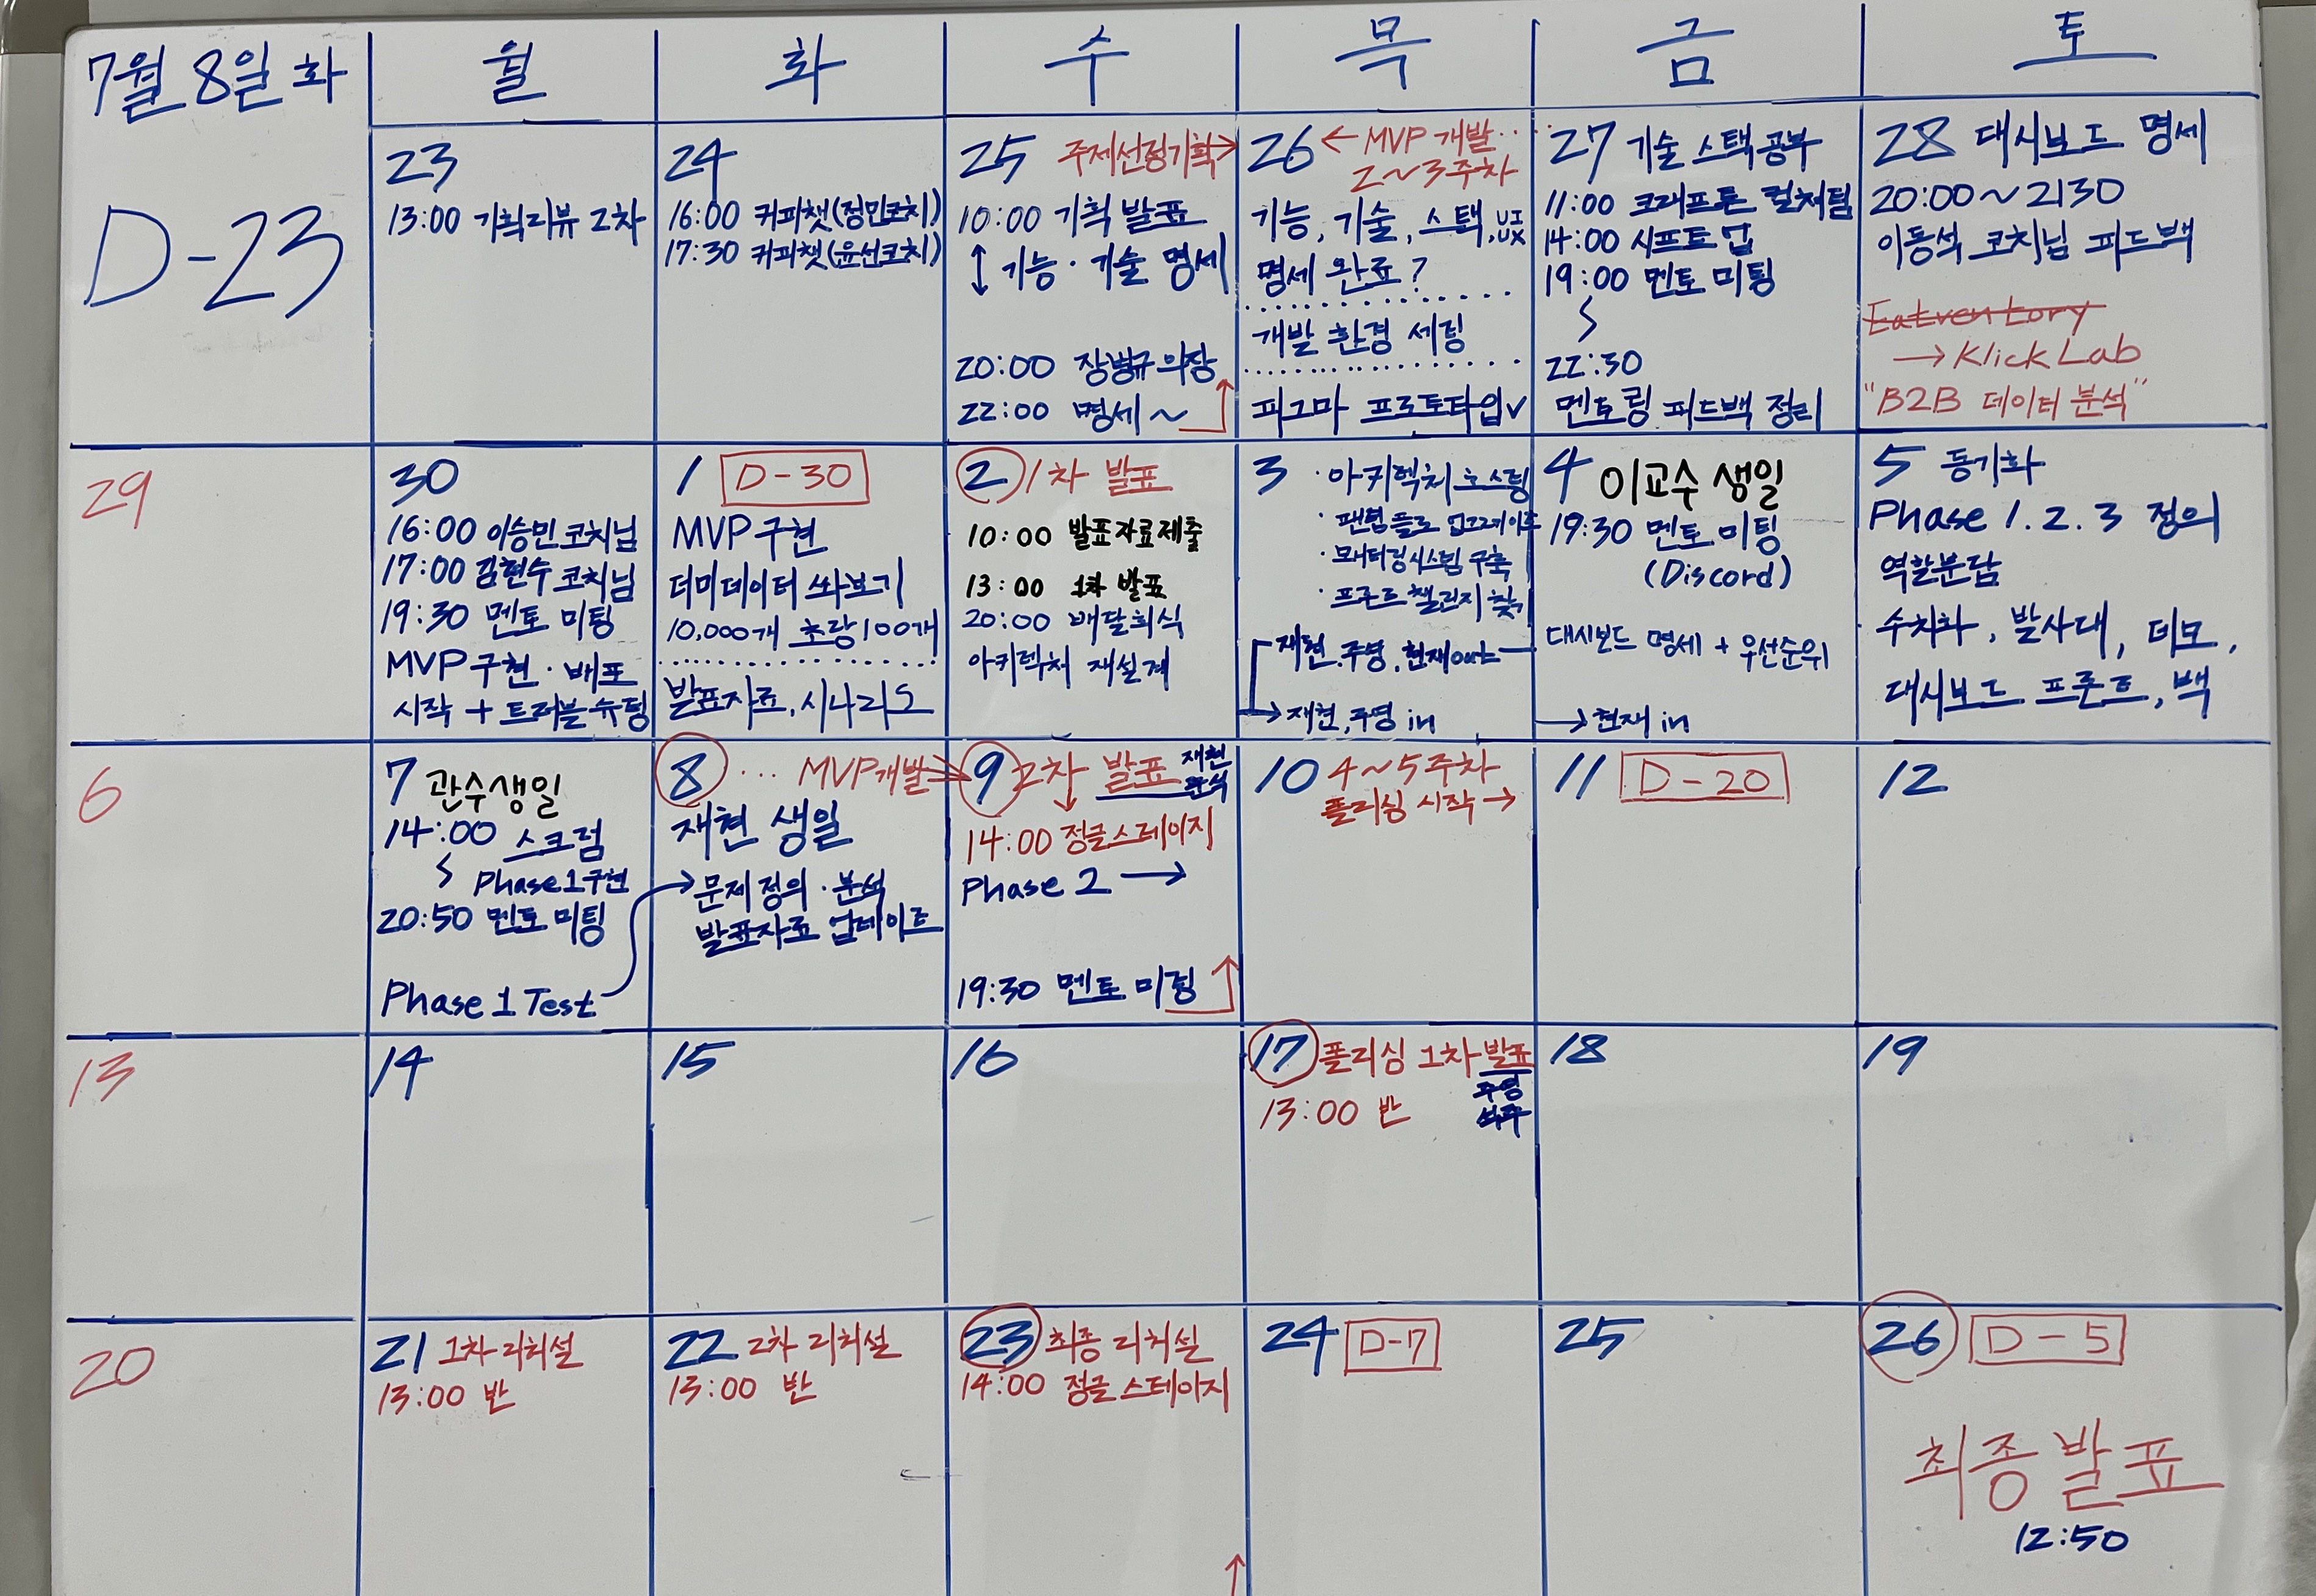 7월 8일 화
월
화
수
목
금
토
D-23
23
13:00 기획리뷰 2차
24
16:00 커피챗(정민코치)
17:30 커피챗(윤선코치)
25 주제선정기획→
10:00 기획 발표
↕ 기능·기술 명세
20:00 장병규 의장
22:00 명세 ~
26 ← MVP 개발··
2~3주차
기능, 기술, 스택, UI UX
명세 완료?
개발 환경 세팅
피그마 프로토타입✓
27 기술 스택 공부
11:00 크래프톤 컬처팀
14:00 시프트업
19:00 멘토 미팅
22:30
멘토링 피드백 정리
28 대시보드 명세
20:00~2130
이동석 코치님 피드백
Eatventory
→ KlickLab
"B2B 데이터 분석"
29
30
16:00 이승민 코치님
17:00 김현수 코치님
19:30 멘토 미팅
MVP 구현·배포
시작 + 트러블슈팅
1 D-30
MVP 구현
더미데이터 쏴보기
10,000개 초당 100개
발표자료, 시나리오
2 1차 발표
10:00 발표자료제출
13:00 1차 발표
20:00 배달회식
아키텍처 재설계
3 ·아키텍처 호스팅
·팬텀플로 업그레이드
·모니터링시스템 구축
·프론트 챌린지 찾기
재현,주영,현재out
→재현,주영 in
4 이교수 생일
19:30 멘토 미팅
(Discord)
대시보드 명세 + 우선순위
→현재 in
5 동기화
Phase 1.2.3 정의
역할분담
수치화, 발사대, 데모,
대시보드 프론트, 백
6
7 관수생일
14:00 스크럼
Phase 1 구현
20:50 멘토 미팅
Phase 1 Test
8 ··· MVP개발→
재현 생일
문제 정의·분석
발표자료 업데이트
9 2차 발표 재현
14:00 정글스테이지
Phase 2 →
19:30 멘토 미팅
10 4~5주차
폴리싱 시작→
11 D-20
12
13
14
15
16
17 폴리싱 1차 발표
주영
13:00 반
18
19
20
21 1차 리허설
13:00 반
22 2차 리허설
13:00 반
23 최종 리허설
14:00 정글 스테이지
24 D-7
25
26 D-5
최종발표
12:50